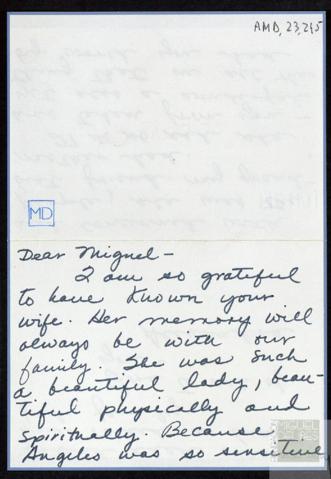 AMD, 23,245
MD
Dear Miguel -
I am so grateful
to have known your
wife. Her memory will
always be with our
family. She was such
a beautiful lady, beau-
tiful physically and
spiritually. Because
Angeles was so sensitive
MIGUEL